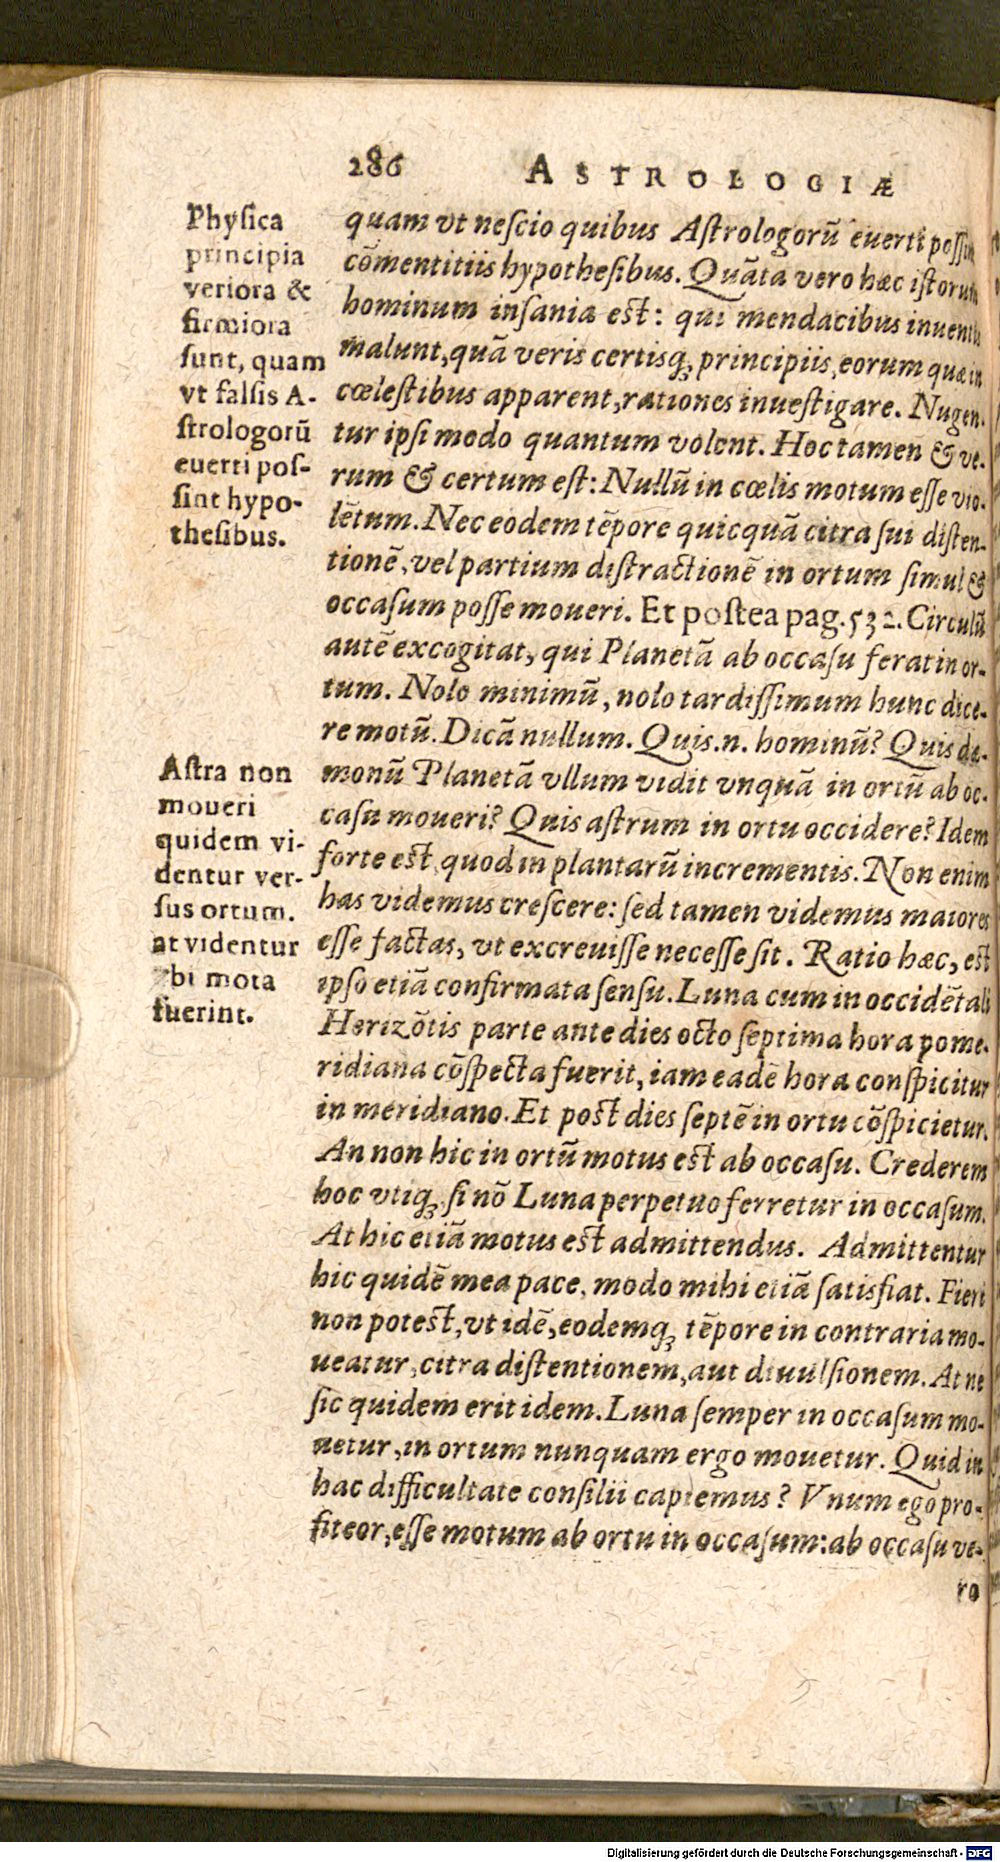 286 ASTROLOGIÆ
Phyſica
principia
veriora &
firmiora
ſunt, quam
vt falſis A-
ſtrologorũ
euerti poſ-
ſint hypo-
theſibus.
quam vt neſcio quibus Aſtrologorũ euerti poſſint
cõmentitiis hypotheſibus. Quãta vero hæc iſtorum
hominum inſania eſt: qui mendacibus inuentis
malunt, quã veris certisq; principiis, eorum quæ in
cœleſtibus apparent, rationes inueſtigare. Nugen-
tur ipſi modo quantum volent. Hoc tamen & ve-
rum & certum eſt: Nullũ in cœlis motum eſſe vio-
lẽtum. Nec eodem tẽpore quicquã citra ſui diſten-
tionẽ, vel partium diſtractionẽ in ortum ſimul &
occaſum poſſe moueri. Et poſtea pag. 532. Circulũ
autẽ excogitat, qui Planetã ab occaſu ferat in or-
tum. Nolo minimũ, nolo tardiſſimum hunc dice-
re motũ. Dicã nullum. Quis.n. hominũ? Quis dæ-
monũ Planetã vllum vidit vnquã in ortũ ab oc-
caſu moueri? Quis aſtrum in ortu occidere? Idem
forte eſt, quod in plantarũ incrementis. Non enim
has videmus creſcere: ſed tamen videmus maiores
eſſe factas, vt excreuiſſe neceſſe ſit. Ratio hæc, eſt
ipſo etiã confirmata ſenſu. Luna cum in occidẽtali
Horizõtis parte ante dies octo ſeptima hora pome-
ridiana cõſpecta fuerit, iam eadẽ hora conſpicitur
in meridiano. Et poſt dies ſeptẽ in ortu cõſpicietur.
An non hic in ortũ motus eſt ab occaſu. Crederem
hoc vtiq; ſi nõ Luna perpetuo ferretur in occaſum.
At hic etiã motus eſt admittendus. Admittentur
hic quidẽ mea pace, modo mihi etiã ſatisfiat. Fieri
non poteſt, vt idẽ, eodemq; tẽpore in contraria mo-
ueatur, citra diſtentionem, aut diuulſionem. At ne
ſic quidem erit idem. Luna ſemper in occaſum mo-
uetur, in ortum nunquam ergo mouetur. Quid in
hac difficultate conſilii capiemus? Vnum ego pro-
fiteor, eſſe motum ab ortu in occaſum: ab occaſu ve-
ro
Aſtra non
moueri
quidem vi-
dentur ver-
ſus ortum.
at videntur
vbi mota
fuerint.
Digitalisierung gefördert durch die Deutsche Forschungsgemeinschaft - DFG